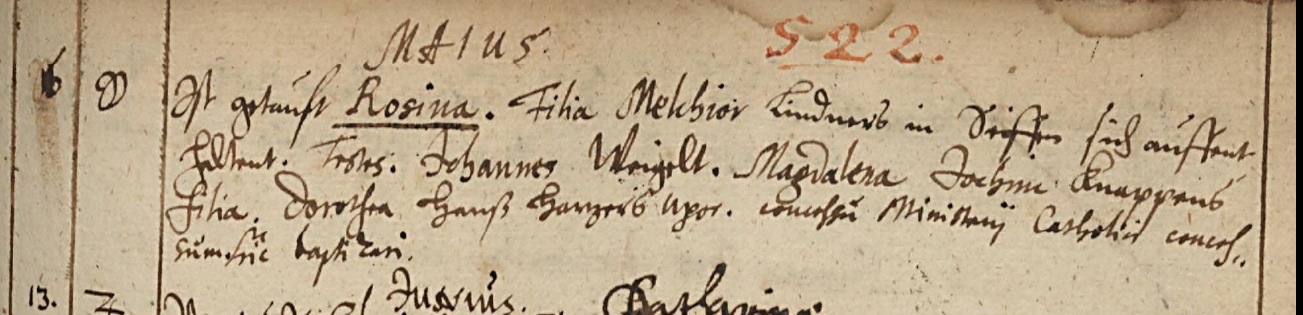 MAIUS. 522.
6 Ist getauft Rosina. Filia Melchior Lindners in Seiffen sich auffent
haltent. Testes. Johannes Weigelt. Magdalena Jochim Knappens
filia. Dorothea Hanß Harzers uxor. concessu Ministerij Catholici conces,,
sum sic baptizari.
Junius.
13.